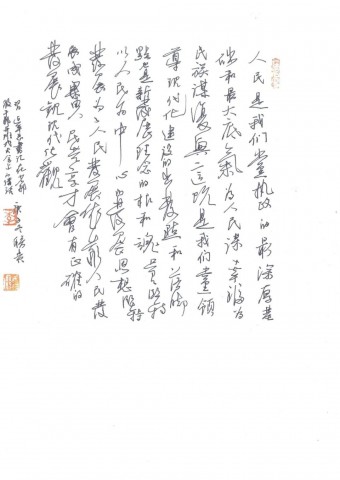 人民是我们党执政的最深厚基
础和最大底气为人民谋幸福为
民族谋复兴这既是我们党领
导现代化建设的出发点和落脚
点也是新发展理念的根和魂只有坚持
以人民为中心的发展思想坚持
发展为了人民发展依靠人民发
展成果由人民共享才会有正确的
发展观现代化观